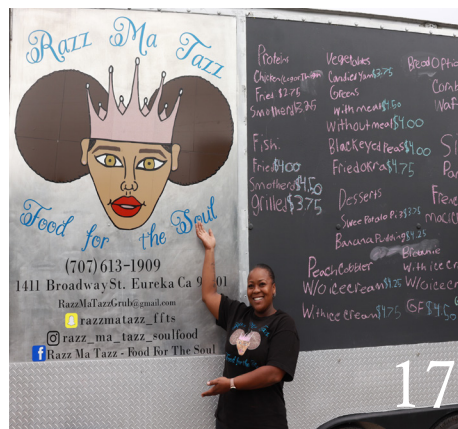 Razz Ma Tazz
Food for the Soul
(707) 613-1909
1411 Broadway St. Eureka Ca
RazzMaTazzGrub@gmail.com
razzmatazz_ffts
razz_ma_tazz_soulfood
Razz Ma Tazz - Food For The Soul
Proteins
Fried $2.75
Smothered
Fish:
Fried $4.00
Smothered $4.50
Grilled $3.75
Vegetables
Candied Yams $3.75
Greens
with meat $4.50
Without meat $4.00
Blackeyed Peas $4.00
Fried okra $4.75
Desserts
Sweet Potato Pie $3.75
Banana Pudding $4.25
Peach Cobbler
W/O ice cream $4.25
With ice cream $4.75
Brownie
With ice
W/O ice
GF $4.50
Bread
17